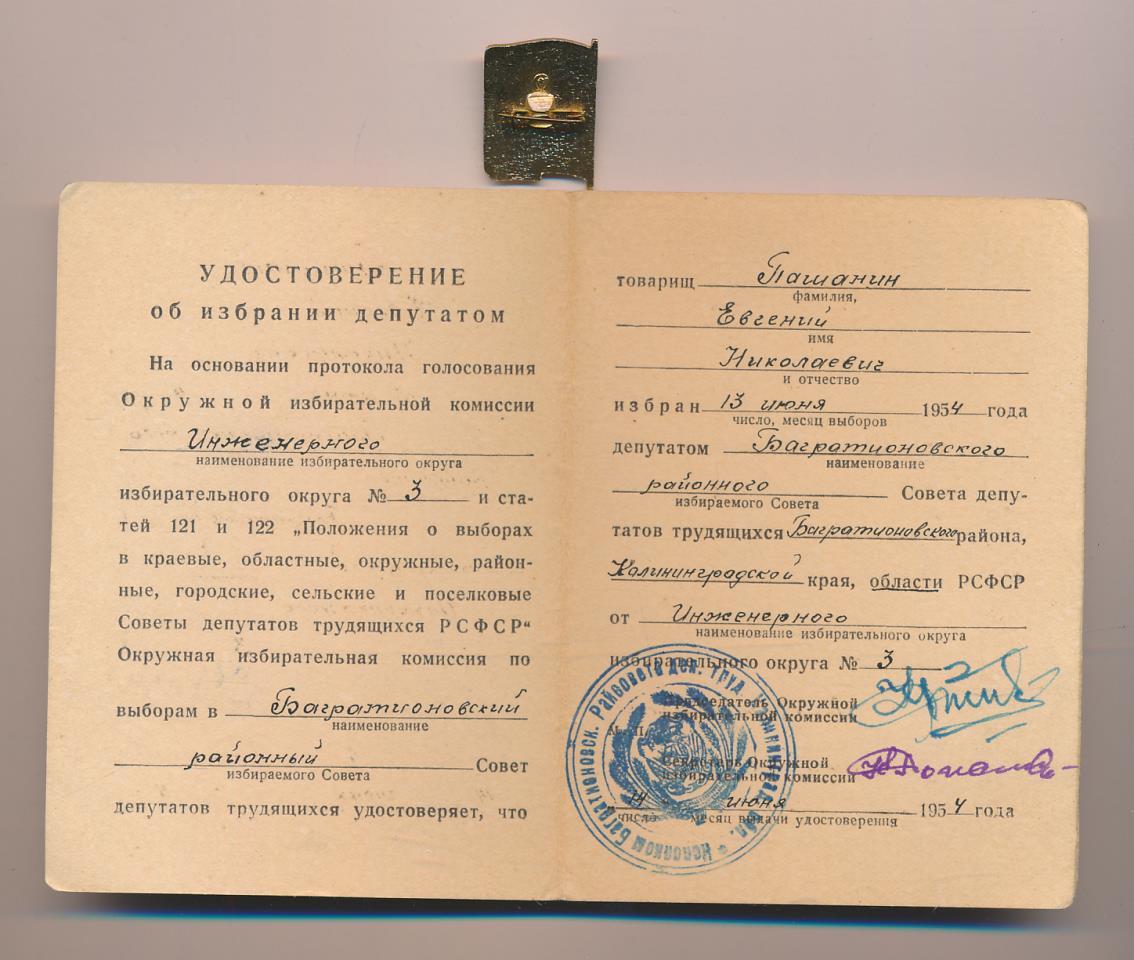 УДОСТОВЕРЕНИЕ
об избрании депутатом
На основании протокола голосования
Окружной избирательной комиссии
Инженерного
наименование избирательного округа
избирательного округа № 3 и ста-
тей 121 и 122 „Положения о выборах
в краевые, областные, окружные, район-
ные, городские, сельские и поселковые
Советы депутатов трудящихся РСФСР“
Окружная избирательная комиссия по
выборам в Багратионовский
наименование
районный Совет
избираемого Совета
депутатов трудящихся удостоверяет, что
товарищ Пашанин
фамилия,
Евгений
имя
Николаевич
и отчество
избран 13 июня 1954 года
число, месяц выборов
депутатом Багратионовского
наименование
районного Совета депу-
избираемого Совета
татов трудящихся Багратионовского района,
Калининградской края, области РСФСР
от Инженерного
наименование избирательного округа
избирательного округа № 3
Председатель Окружной
избирательной комиссии
М. П.
Секретарь Окружной
избирательной комиссии
14 июня 1954 года
число месяц выдачи удостоверения
Исполком Багратионовск. Райсовета деп. труд. Калининград. обл.